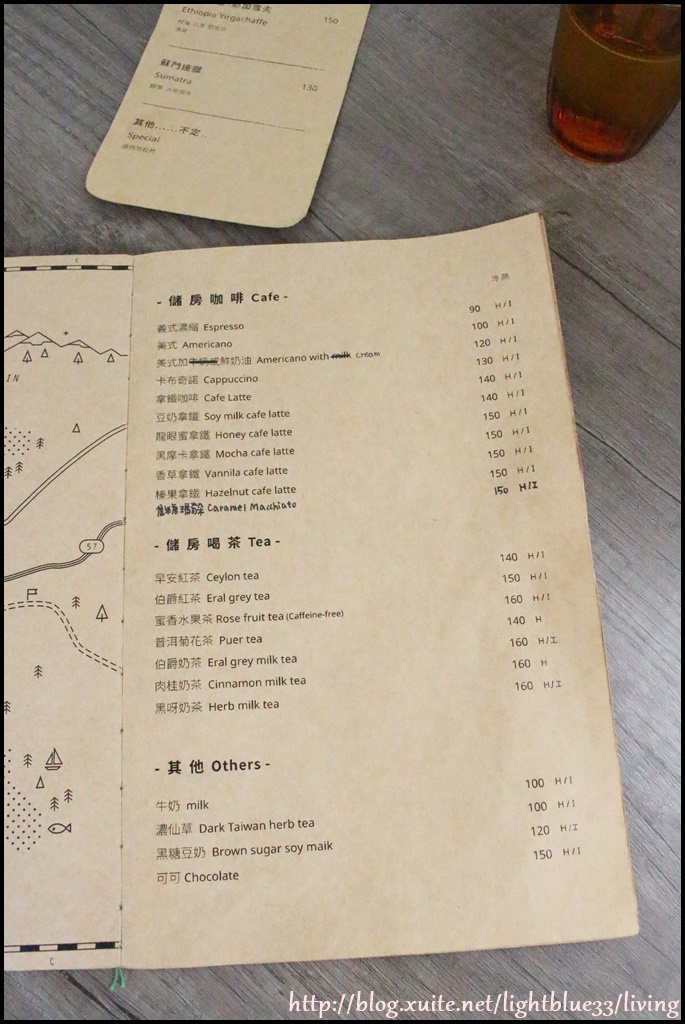 耶加雪夫
Ethiopia Yirgachaffe 150
蘇門達臘
Sumatra 130
其他......不定..
Special
C
IN
57
C
冷 熱
- 儲房咖啡 Cafe -
義式濃縮 Espresso 90 H/I
美式 Americano 100 H/I
美式加牛奶或鮮奶油 Americano with milk cream 120 H/I
卡布奇諾 Cappuccino 130 H/I
拿鐵咖啡 Cafe Latte 140 H/I
豆奶拿鐵 Soy milk cafe latte 140 H/I
龍眼蜜拿鐵 Honey cafe latte 150 H/I
黑摩卡拿鐵 Mocha cafe latte 150 H/I
香草拿鐵 Vannila cafe latte 150 H/I
榛果拿鐵 Hazelnut cafe latte 150 H/I
焦糖瑪朵 Caramel Macchiato 150 H/I
- 儲房喝茶 Tea -
早安紅茶 Ceylon tea 140 H/I
伯爵紅茶 Eral grey tea 150 H/I
蜜香水果茶 Rose fruit tea (Caffeine-free) 160 H/I
普洱菊花茶 Puer tea 140 H
伯爵奶茶 Eral grey milk tea 160 H/I
肉桂奶茶 Cinnamon milk tea 160 H
黑呀奶茶 Herb milk tea 160 H/I
- 其他 Others -
牛奶 milk 100 H/I
濃仙草 Dark Taiwan herb tea 100 H/I
黑糖豆奶 Brown sugar soy maik 120 H/I
可可 Chocolate 150 H/I
http://blog.xuite.net/lightblue33/living